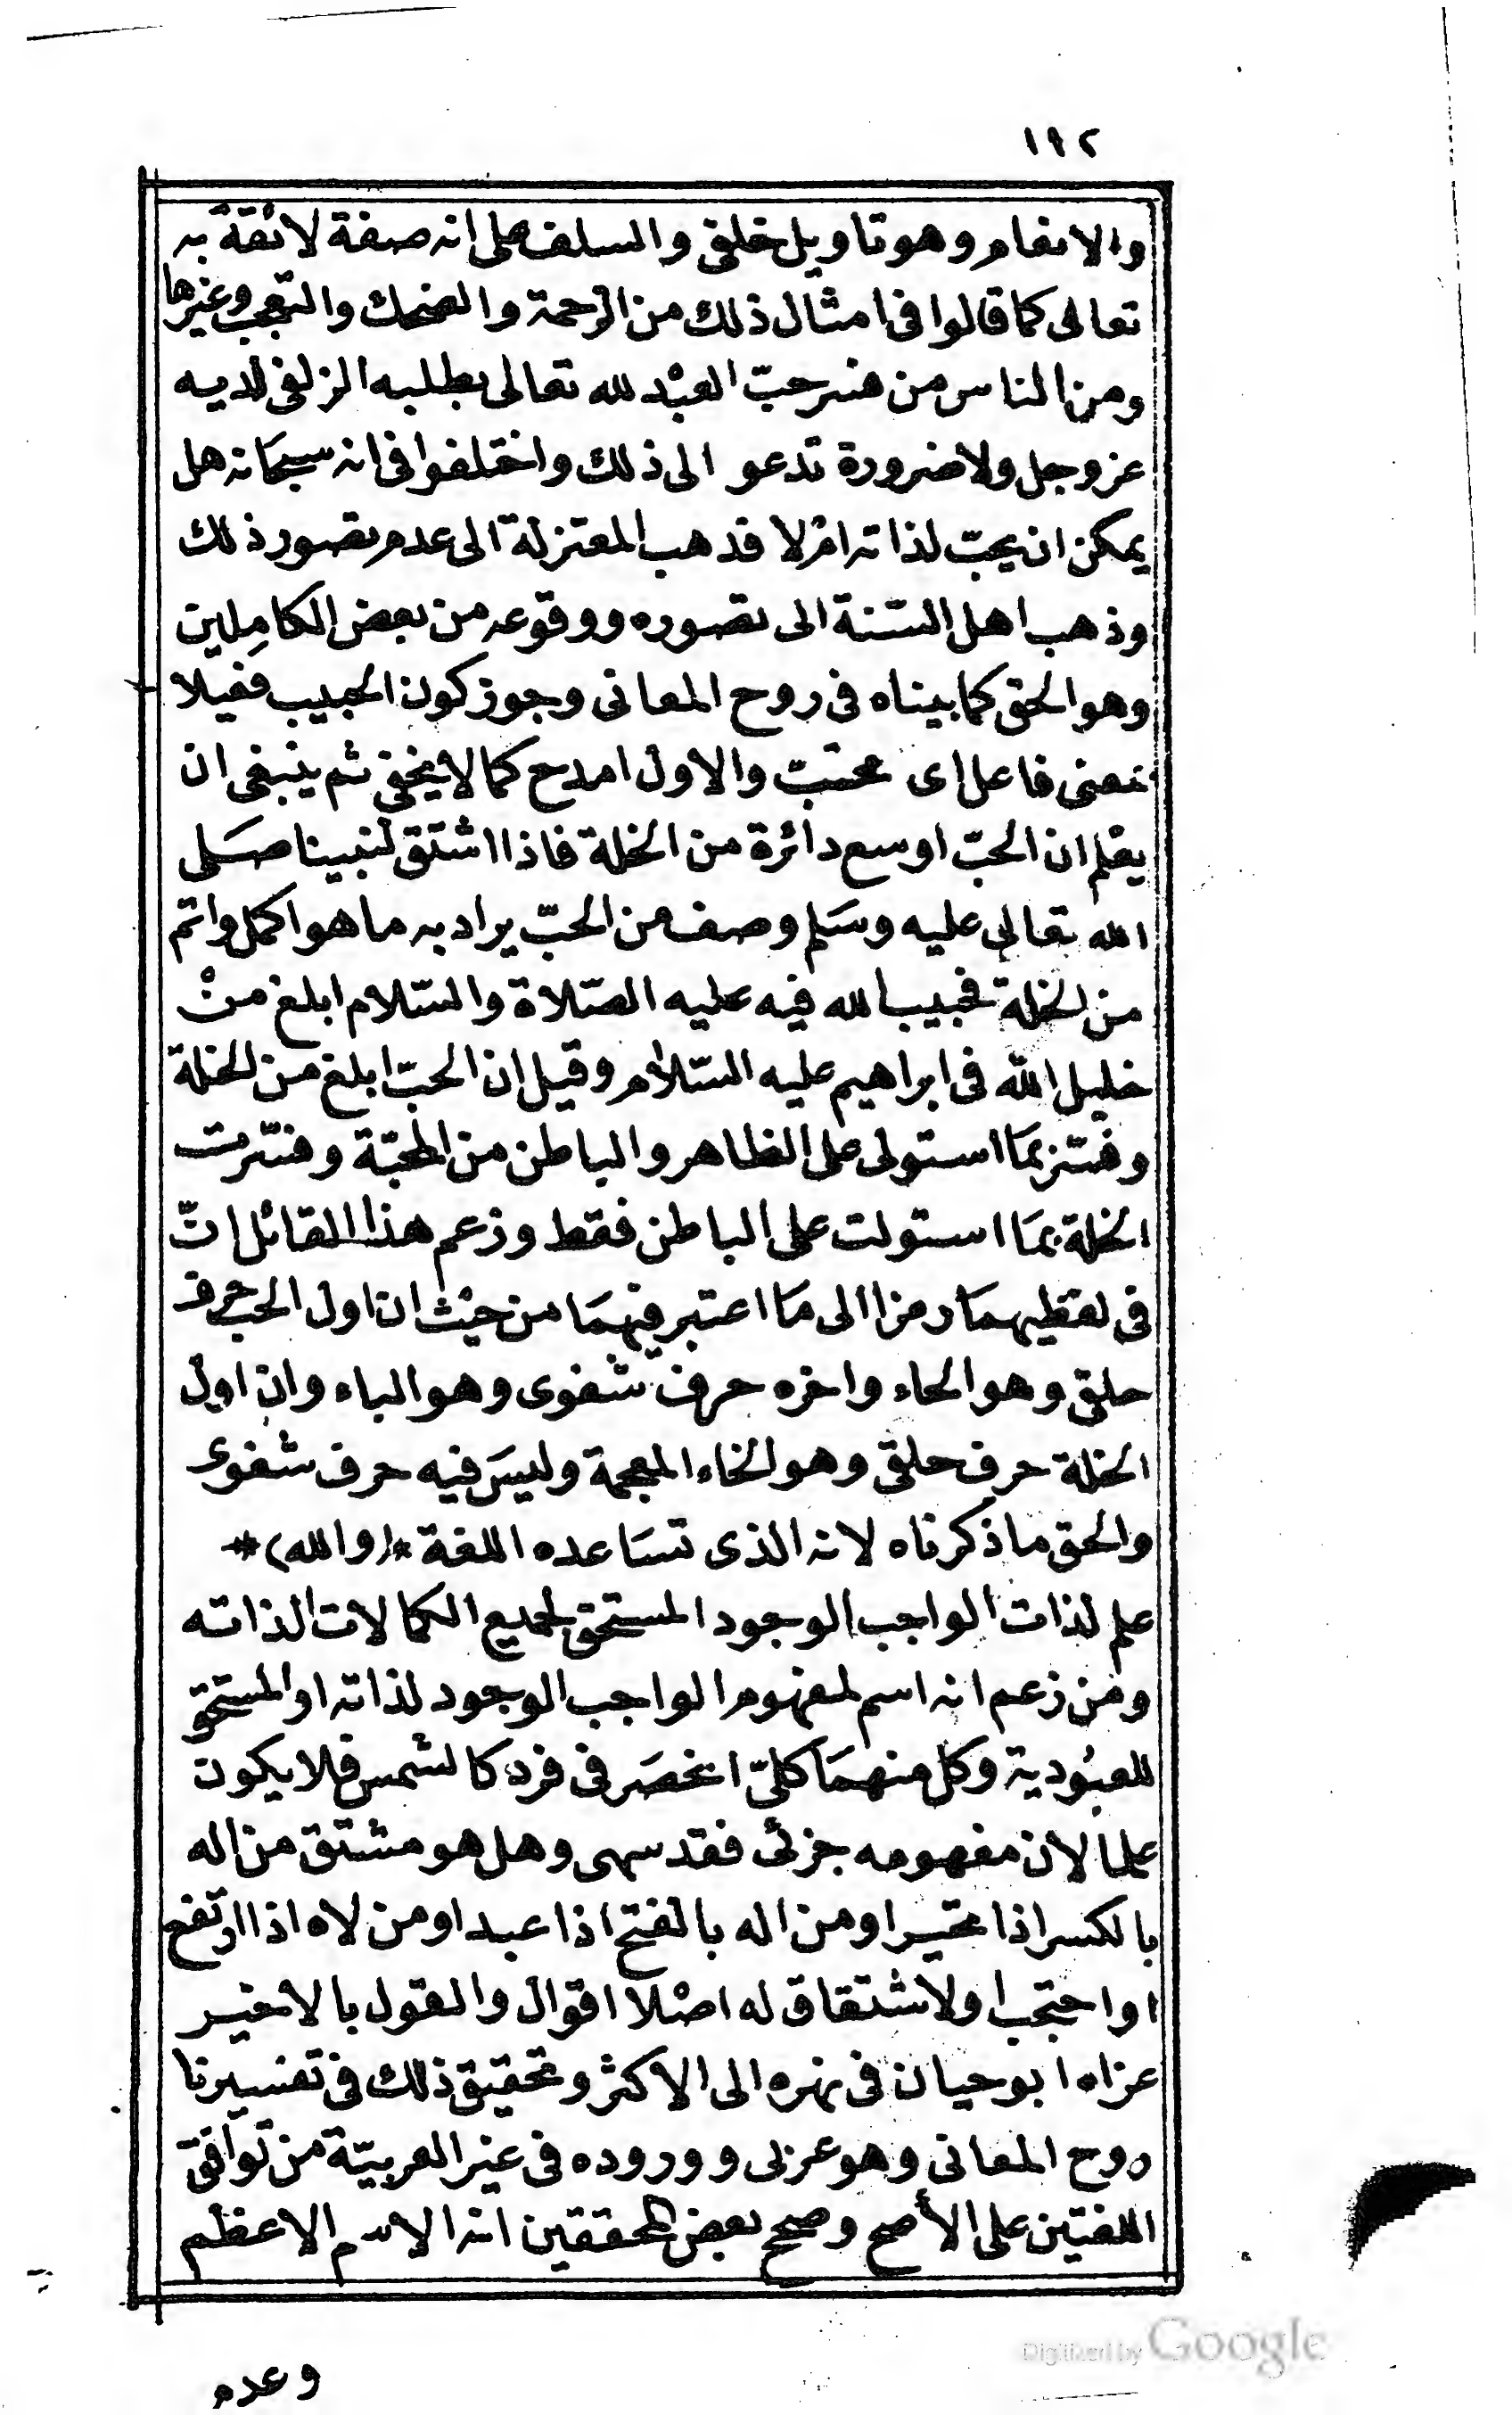 ١٩٢
والانعام وهو تاويل خلفى والسلف على انه صفة لائقة به
تعالى كما قالوا فى امثال ذلك من الرحمة والضحك والتعجب وغيرها
ومن الناس من فسر حبّ العبْد لله تعالى بطلبه الزلفى لديه
عز وجل ولا ضرورة تدعو الى ذلك واختلفوا فى انه سبحانه هل
يمكن ان يحبّ لذاته امْ لا فذهب المعتزلة الى عدم تصور ذلك
وذهب اهل السّنة الى تصوره ووقوعه من بعض الكامِلين
وهو الحق كما بيناه فى روح المعانى وجوز كون الحبيب فعيلا
بمعنى فاعل اى محبّ والاول امدح كما لا يخفى ثم ينبغى ان
يعْلم ان الحبّ اوسع دائرة من الخلة فاذا اشتق لنبينا صَلى
الله تعالى عليه وسَلم وصف من الحبّ يراد به ما هو اكمل واتم
من الخلة فحبيب الله فيه عليه الصّلاة والسّلام ابلغ منْ
خليل الله فى ابراهيم عليه السّلام وقيل ان الحبّ ابلغ من الخلة
وفسّر بمَا استولى على الظاهر والباطن من المحبّة وفسّرت
الخلة بمَا استولت على الباطن فقط وزعم هذا القائل انّ
فى لفظيهمَا رمزا الى مَا اعتبر فيهمَا من حيْث ان اول الحب حرف
حلقى وهو الحاء واخره حرف شفوى وهو الباء وان اول
الخلة حرف حلقى وهو الخاء المعجمة وليسَ فيه حرف شفوى
والحق ما ذكرناه لانه الذى تسَاعده اللغة *(والله)*
علم لذات الواجب الوجود المستحق لجميع الكمالات الذاته
ومن زعم انه اسم لمفهوم الواجب الوجود لذاته او المستحق
للعبُودية وكل منهمَا كلىّ انحصَر فى فرد كالشمس فلا يكون
علما لان مفهومه جزئى فقد سهى وهل هو مشتق من اله
بالكسر اذا تحير او من اله بالفتح اذا عبد او من لاه اذا ارتفع
او احتجب او لا شتقاق له اصْلا اقوال والقول بالاخير
عزاه ابو حيان فى نهره الى الاكثر وتحقيق ذلك فى تفسيرنا
روح المعانى وهو عربى ووروده فى غير العربيّة من توافق
اللغتين على الأصح وصحح بعض المحققين انه الاسم الاعظم
وعدم
Digitized by Google